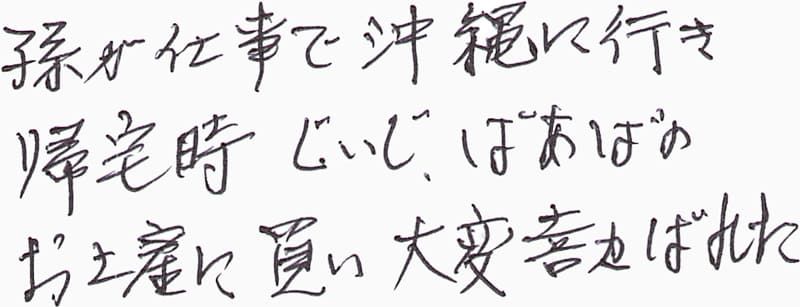 孫が仕事で沖縄に行き
帰宅時 じいじ、ばあばの
お土産に買い 大変喜ばれた